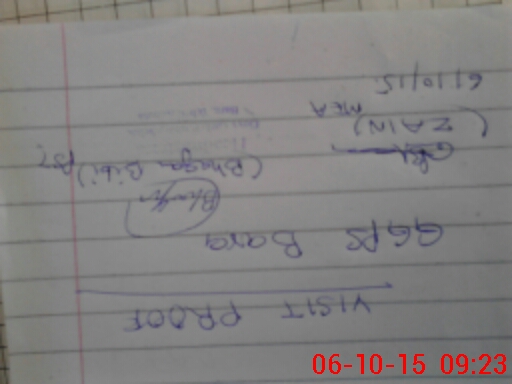 VISIT PROOF
GGPS Bara
(Bhaga Bibi) PST.
(ZAIN)
MEA
6/10/15.
06-10-15 09:23